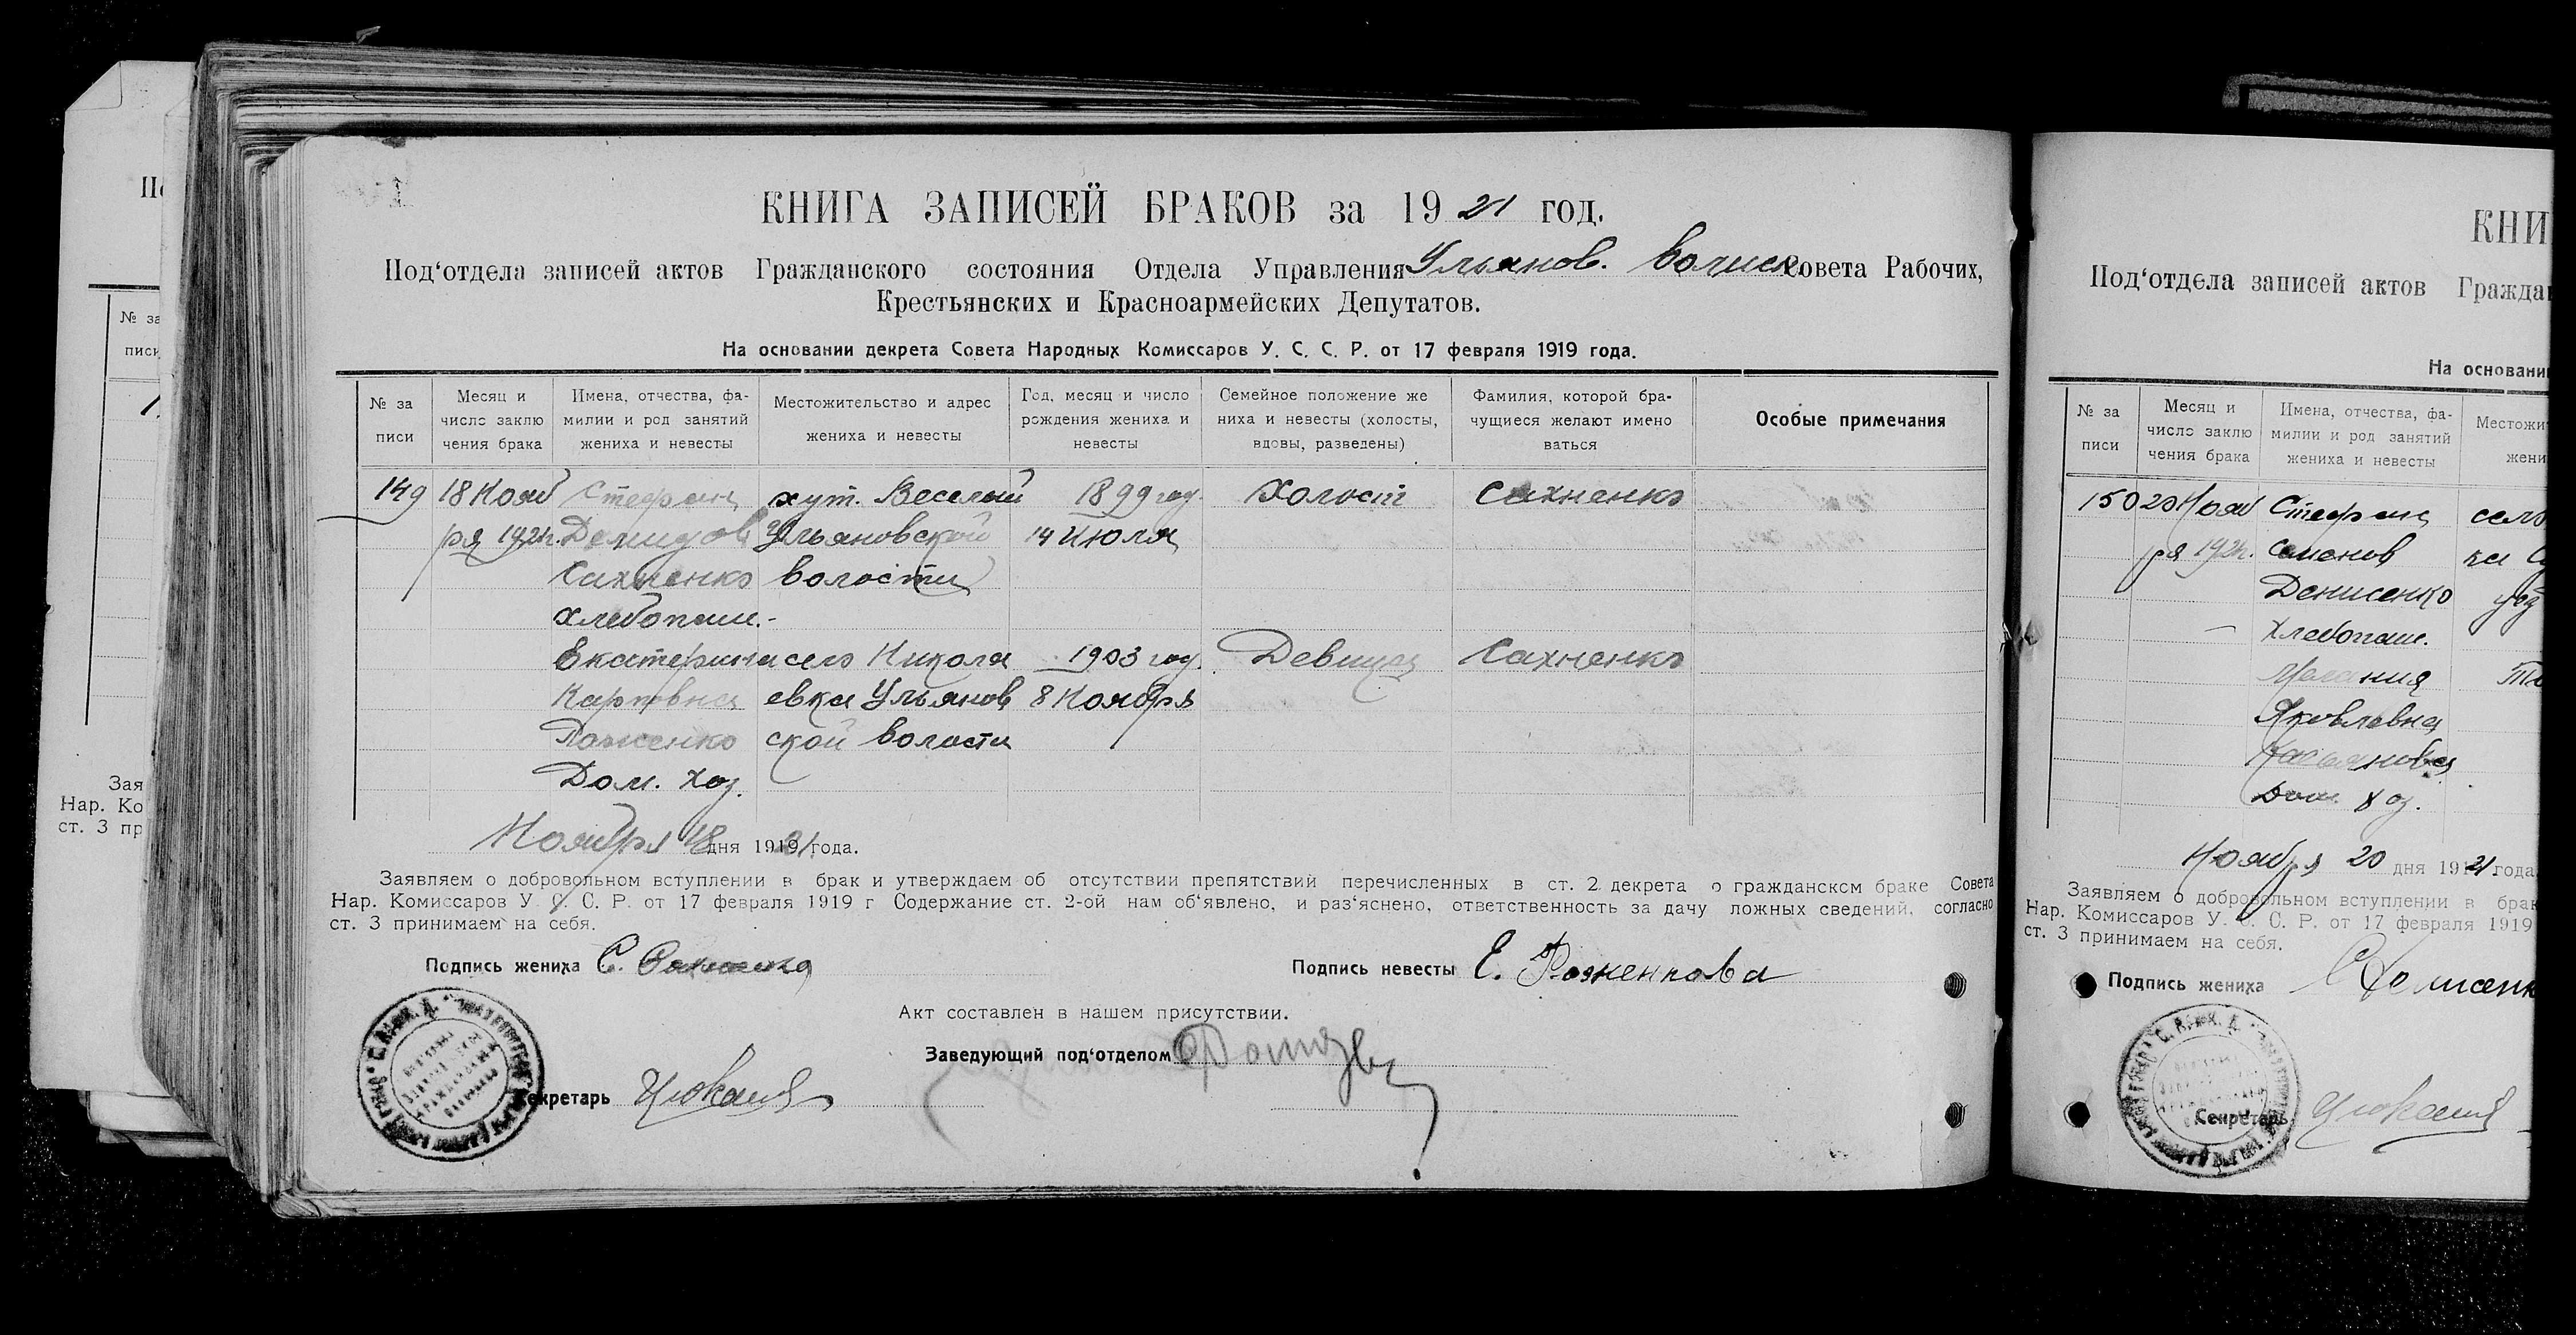 КНИГА ЗАПИСЕЙ БРАКОВ за 1921 год.
Под‘отдела записей актов Гражданского состояния Отдела Управления Ульянов. волисп. Совета Рабочих,
Крестьянских и Красноармейских Депутатов.
На основании декрета Совета Народных Комиссаров У. С. С. Р. от 17 февраля 1919 года.
№ за писи
Месяц и число заклю чения брака
Имена, отчества, фа- милии и род занятий жениха и невесты
Местожительство и адрес жениха и невесты
Год, месяц и число рождения жениха и невесты
Семейное положение же ниха и невесты (холосты, вдовы, разведены)
Фамилия, которой бра- чущиеся желают имено ваться
Особые примечания
149 18 Нояб Стефан хут. Веселый 1899 год. Холост Сахненко
ря 1921г. Демидов Ульяновской 14 Июля
Сахненко волости
хлебопаш.-
Екатерина село Никола 1903 год. Девица Сахненко
Карповна евка Ульянов 8 Ноября
ской волости
Дом. хоз.
Ноября 18 дня 1921 года.
Заявляем о добровольном вступлении в брак и утверждаем об отсутствии препятствий перечисленных в ст. 2 декрета о гражданском браке Совета
Нар. Комиссаров У. С. С. Р. от 17 февраля 1919 г Содержание ст. 2-ой нам об‘явлено, и раз‘яснено, ответственность за дачу ложных сведений, согласно
ст. 3 принимаем на себя.
Подпись жениха С. Сахненко
Подпись невесты Е. Роженкова
Акт составлен в нашем присутствии.
Заведующий под‘отделом
Секретарь
КНИ
Под‘отдела записей актов Гражда
На основани
№ за писи
Месяц и число заклю чения брака
Имена, отчества, фа- милии и род занятий жениха и невесты
Местожи жени
150 20 Нояб Стефан село
ря 1921г. Семенов ка
Денисенко уез
хлебопаш.
Мелания
Яковлевна
Дом хоз.
Ноября 20 дня 1921 года
Заявляем о добровольном вступлении в брак
Нар. Комиссаров У. С. С. Р. от 17 февраля 1919
ст. 3 принимаем на себя.
Подпись жениха
Секретарь
№ за
писи
Зая
Нар. Ко
ст. 3 пр